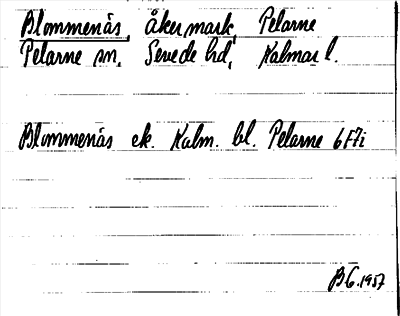 Blommenäs, åkermark, Pelarne
Pelarne sn, Sevede hd, Kalmar l.
Blommenäs ek. Kalm. bl. Pelarne 6 F7i
BG.1957